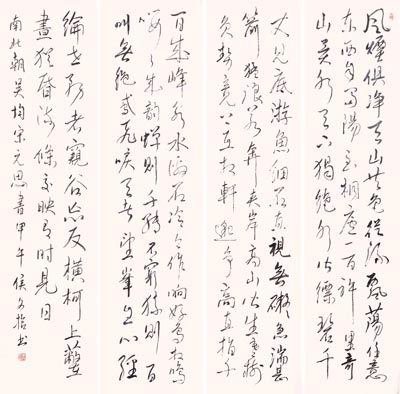 風煙俱淨天山共色從流飄蕩任意
東西自富陽至桐廬一百許里奇
山異水天下獨絕水皆縹碧千
丈見底游魚細石直視無礙急湍甚
箭猛浪若奔夾岸高山皆生寒樹
負勢競上互相軒邈爭高直指千
百成峰泉水激石泠泠作響好鳥相鳴
嚶嚶成韻蟬則千轉不窮猿則百
叫無絕鳶飛唳天者望峯息心經
綸世務者窺谷忘反橫柯上蔽
晝猶昏疏條交映有時見日
南北朝吳均宋元思書甲午侯書